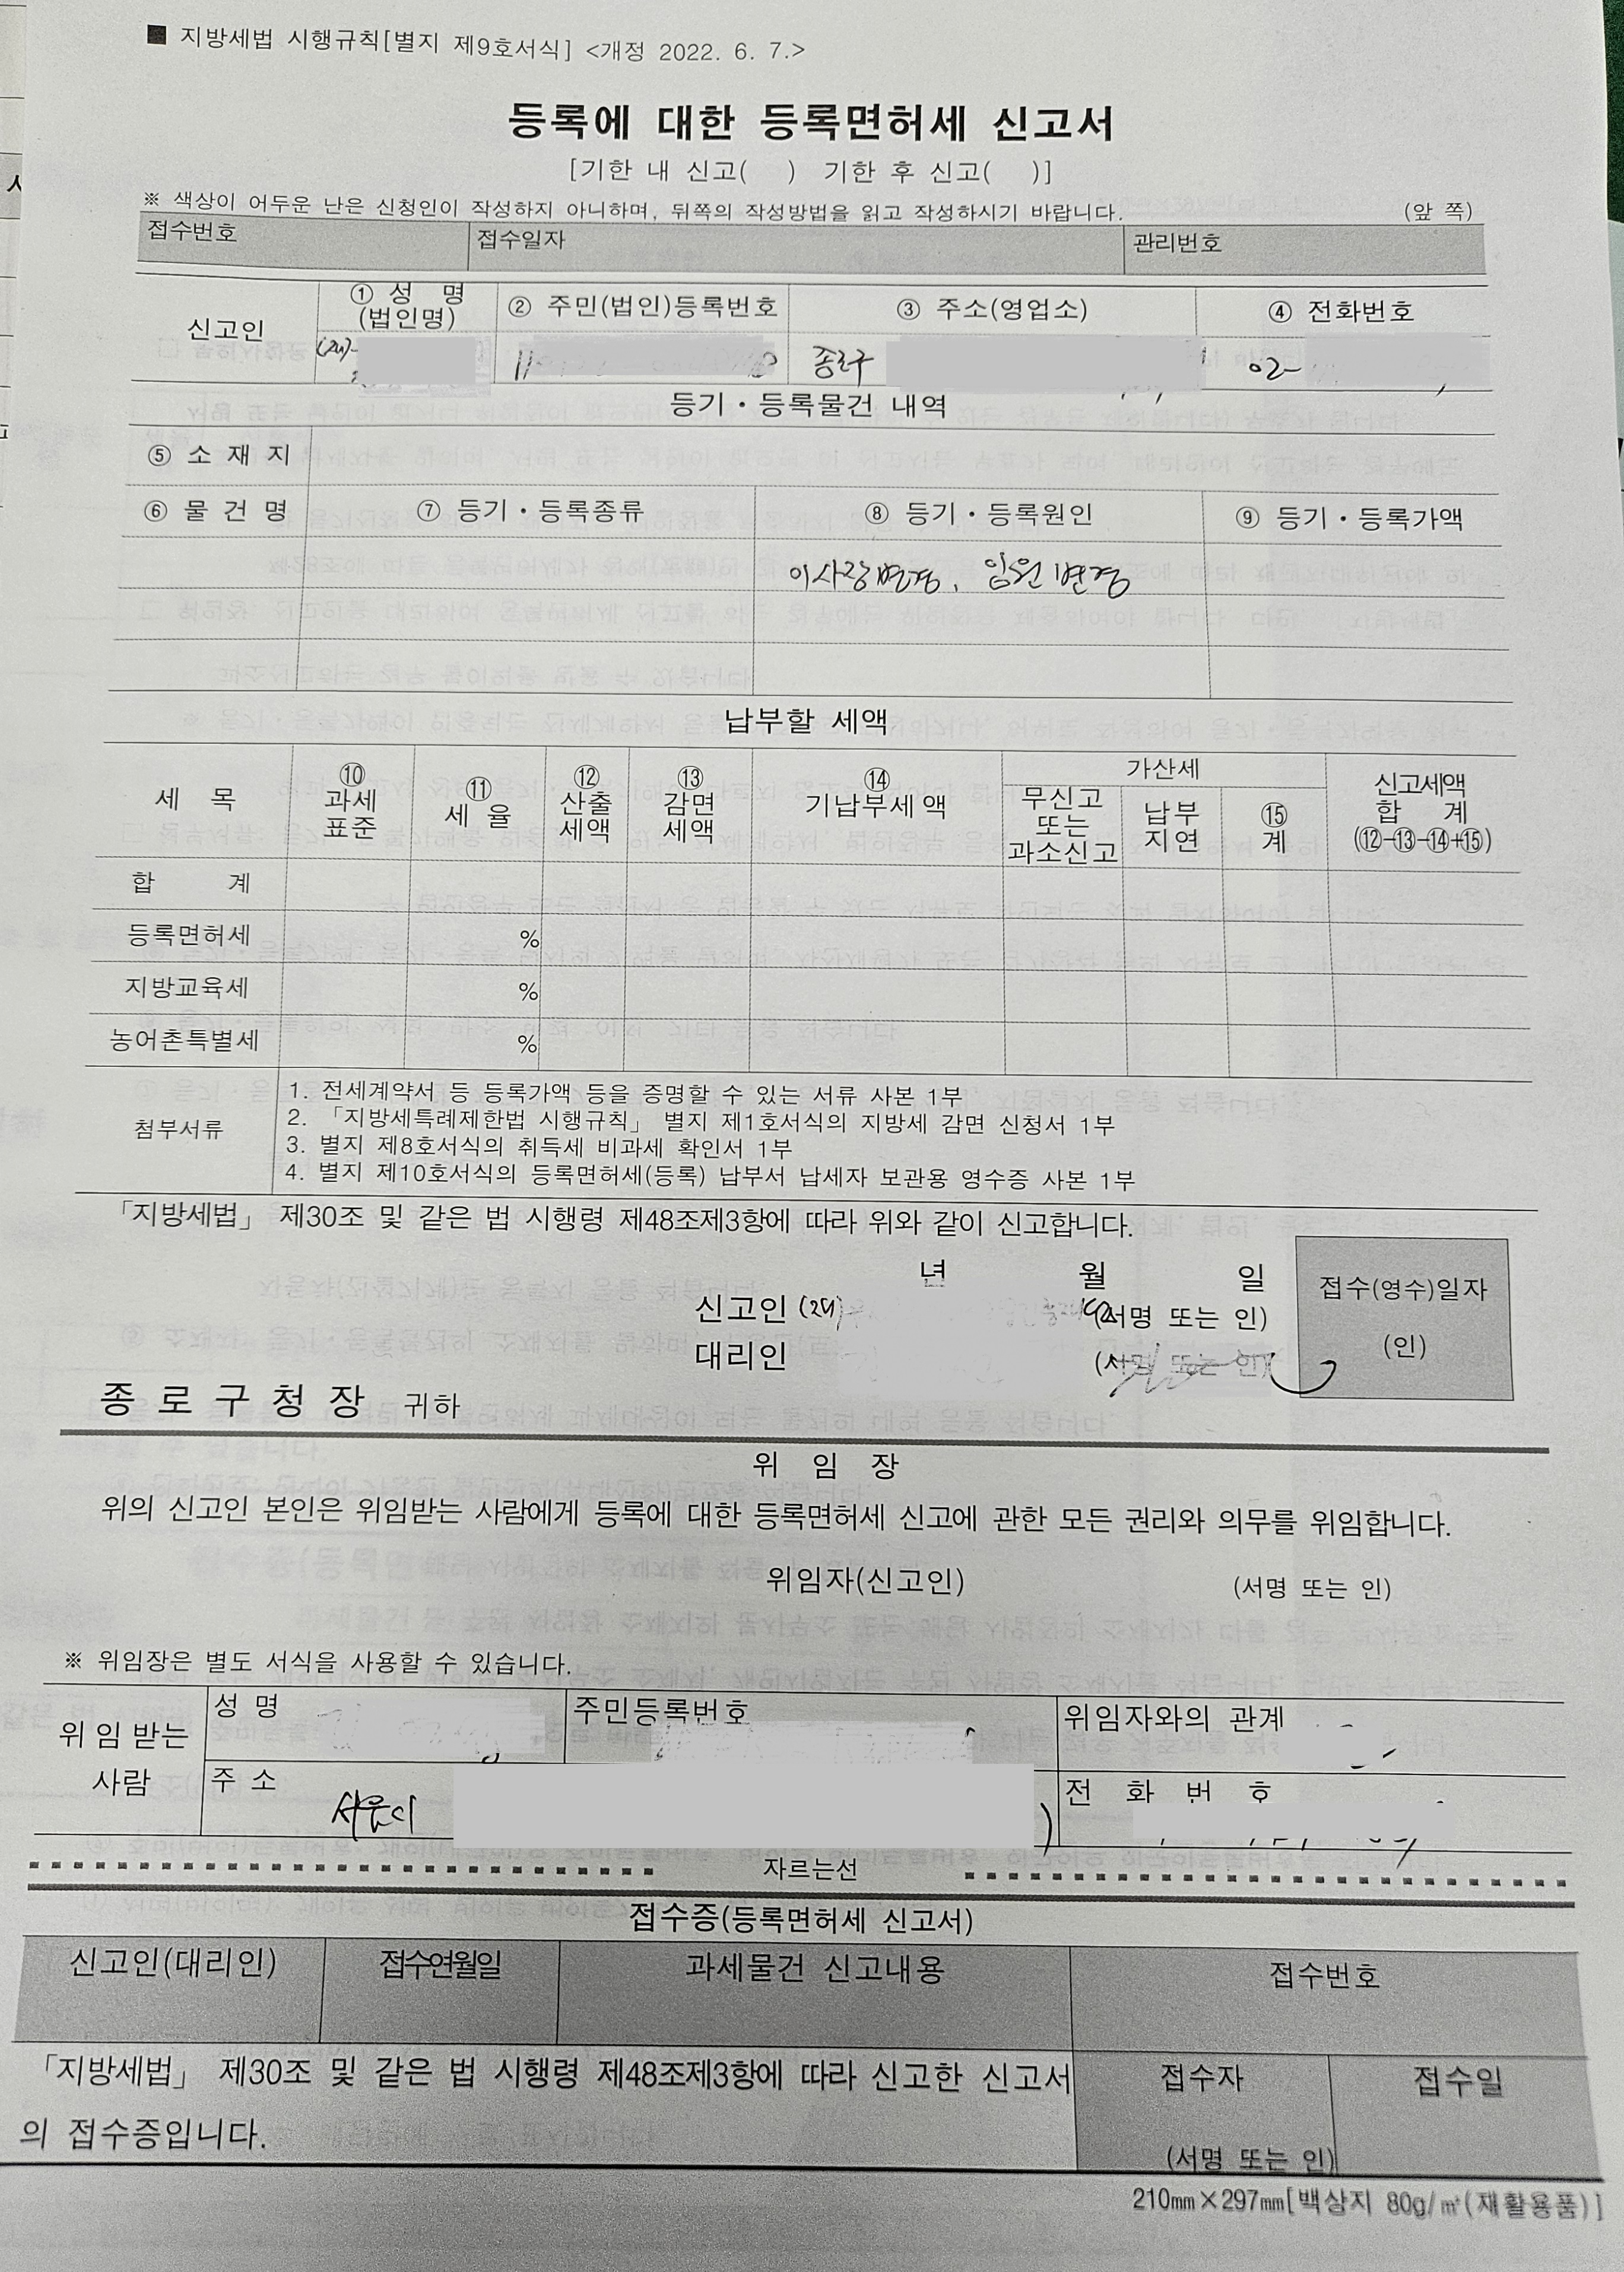 ■ 지방세법 시행규칙[별지 제9호서식] <개정 2022. 6. 7.>
등록에 대한 등록면허세 신고서
[기한 내 신고(  )  기한 후 신고(  )]
※ 색상이 어두운 난은 신청인이 작성하지 아니하며, 뒤쪽의 작성방법을 읽고 작성하시기 바랍니다. (앞 쪽)
접수번호 접수일자 관리번호
신고인 ① 성 명 (법인명) ② 주민(법인)등록번호 ③ 주소(영업소) ④ 전화번호
(재) 종로구 02-
등기·등록물건 내역
⑤ 소 재 지
⑥ 물 건 명 ⑦ 등기·등록종류 ⑧ 등기·등록원인 ⑨ 등기·등록가액
이사장변경, 임원변경
납부할 세액
세 목 ⑩ 과세 표준 ⑪ 세 율 ⑫ 산출 세액 ⑬ 감면 세액 ⑭ 기납부세액 가산세 신고세액 합 계 (⑫-⑬-⑭+⑮)
무신고 또는 과소신고 납부 지연 ⑮ 계
합 계
등록면허세 %
지방교육세 %
농어촌특별세 %
첨부서류
1. 전세계약서 등 등록가액 등을 증명할 수 있는 서류 사본 1부
2. 「지방세특례제한법 시행규칙」 별지 제1호서식의 지방세 감면 신청서 1부
3. 별지 제8호서식의 취득세 비과세 확인서 1부
4. 별지 제10호서식의 등록면허세(등록) 납부서 납세자 보관용 영수증 사본 1부
「지방세법」 제30조 및 같은 법 시행령 제48조제3항에 따라 위와 같이 신고합니다.
년 월 일
신고인 (재) (서명 또는 인)
대리인 (서명 또는 인)
접수(영수)일자
(인)
종로구청장 귀하
위 임 장
위의 신고인 본인은 위임받는 사람에게 등록에 대한 등록면허세 신고에 관한 모든 권리와 의무를 위임합니다.
위임자(신고인) (서명 또는 인)
※ 위임장은 별도 서식을 사용할 수 있습니다.
위임 받는 사람 성 명 주민등록번호 위임자와의 관계
주 소 서울시 전 화 번 호
자르는선
접수증(등록면허세 신고서)
신고인(대리인) 접수연월일 과세물건 신고내용 접수번호
「지방세법」 제30조 및 같은 법 시행령 제48조제3항에 따라 신고한 신고서
의 접수증입니다.
접수자 접수일
(서명 또는 인)
210㎜×297㎜[백상지 80g/㎡(재활용품)]